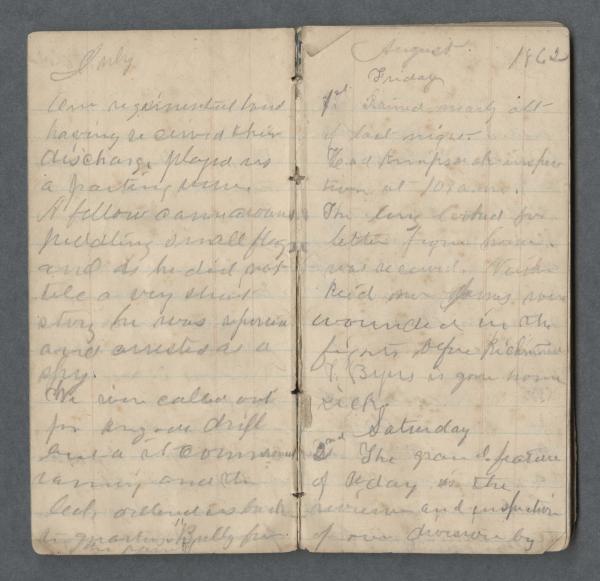 July
Our regimental band
having received their
discharge played us
a parting tune.
A fellow came around
peddling small flags
and as he did not
tell a very strait
story he was
and arrested as a
spy.
We were called out
for drill
but it commenced
raining and the
ordered us back
to quarters Bully for
the rain
August 1862
Friday
1st Rained nearly all
of last night.
Had Knapsack inspec
tion at 10 a.m.
The long looked for
letter from home
was received.
Reid and James were
wounded in the
fights before Richmond
T. Byers is gone home
sick.
Saturday
2nd The grand feature
of to day is the
review and inspection
of our division by